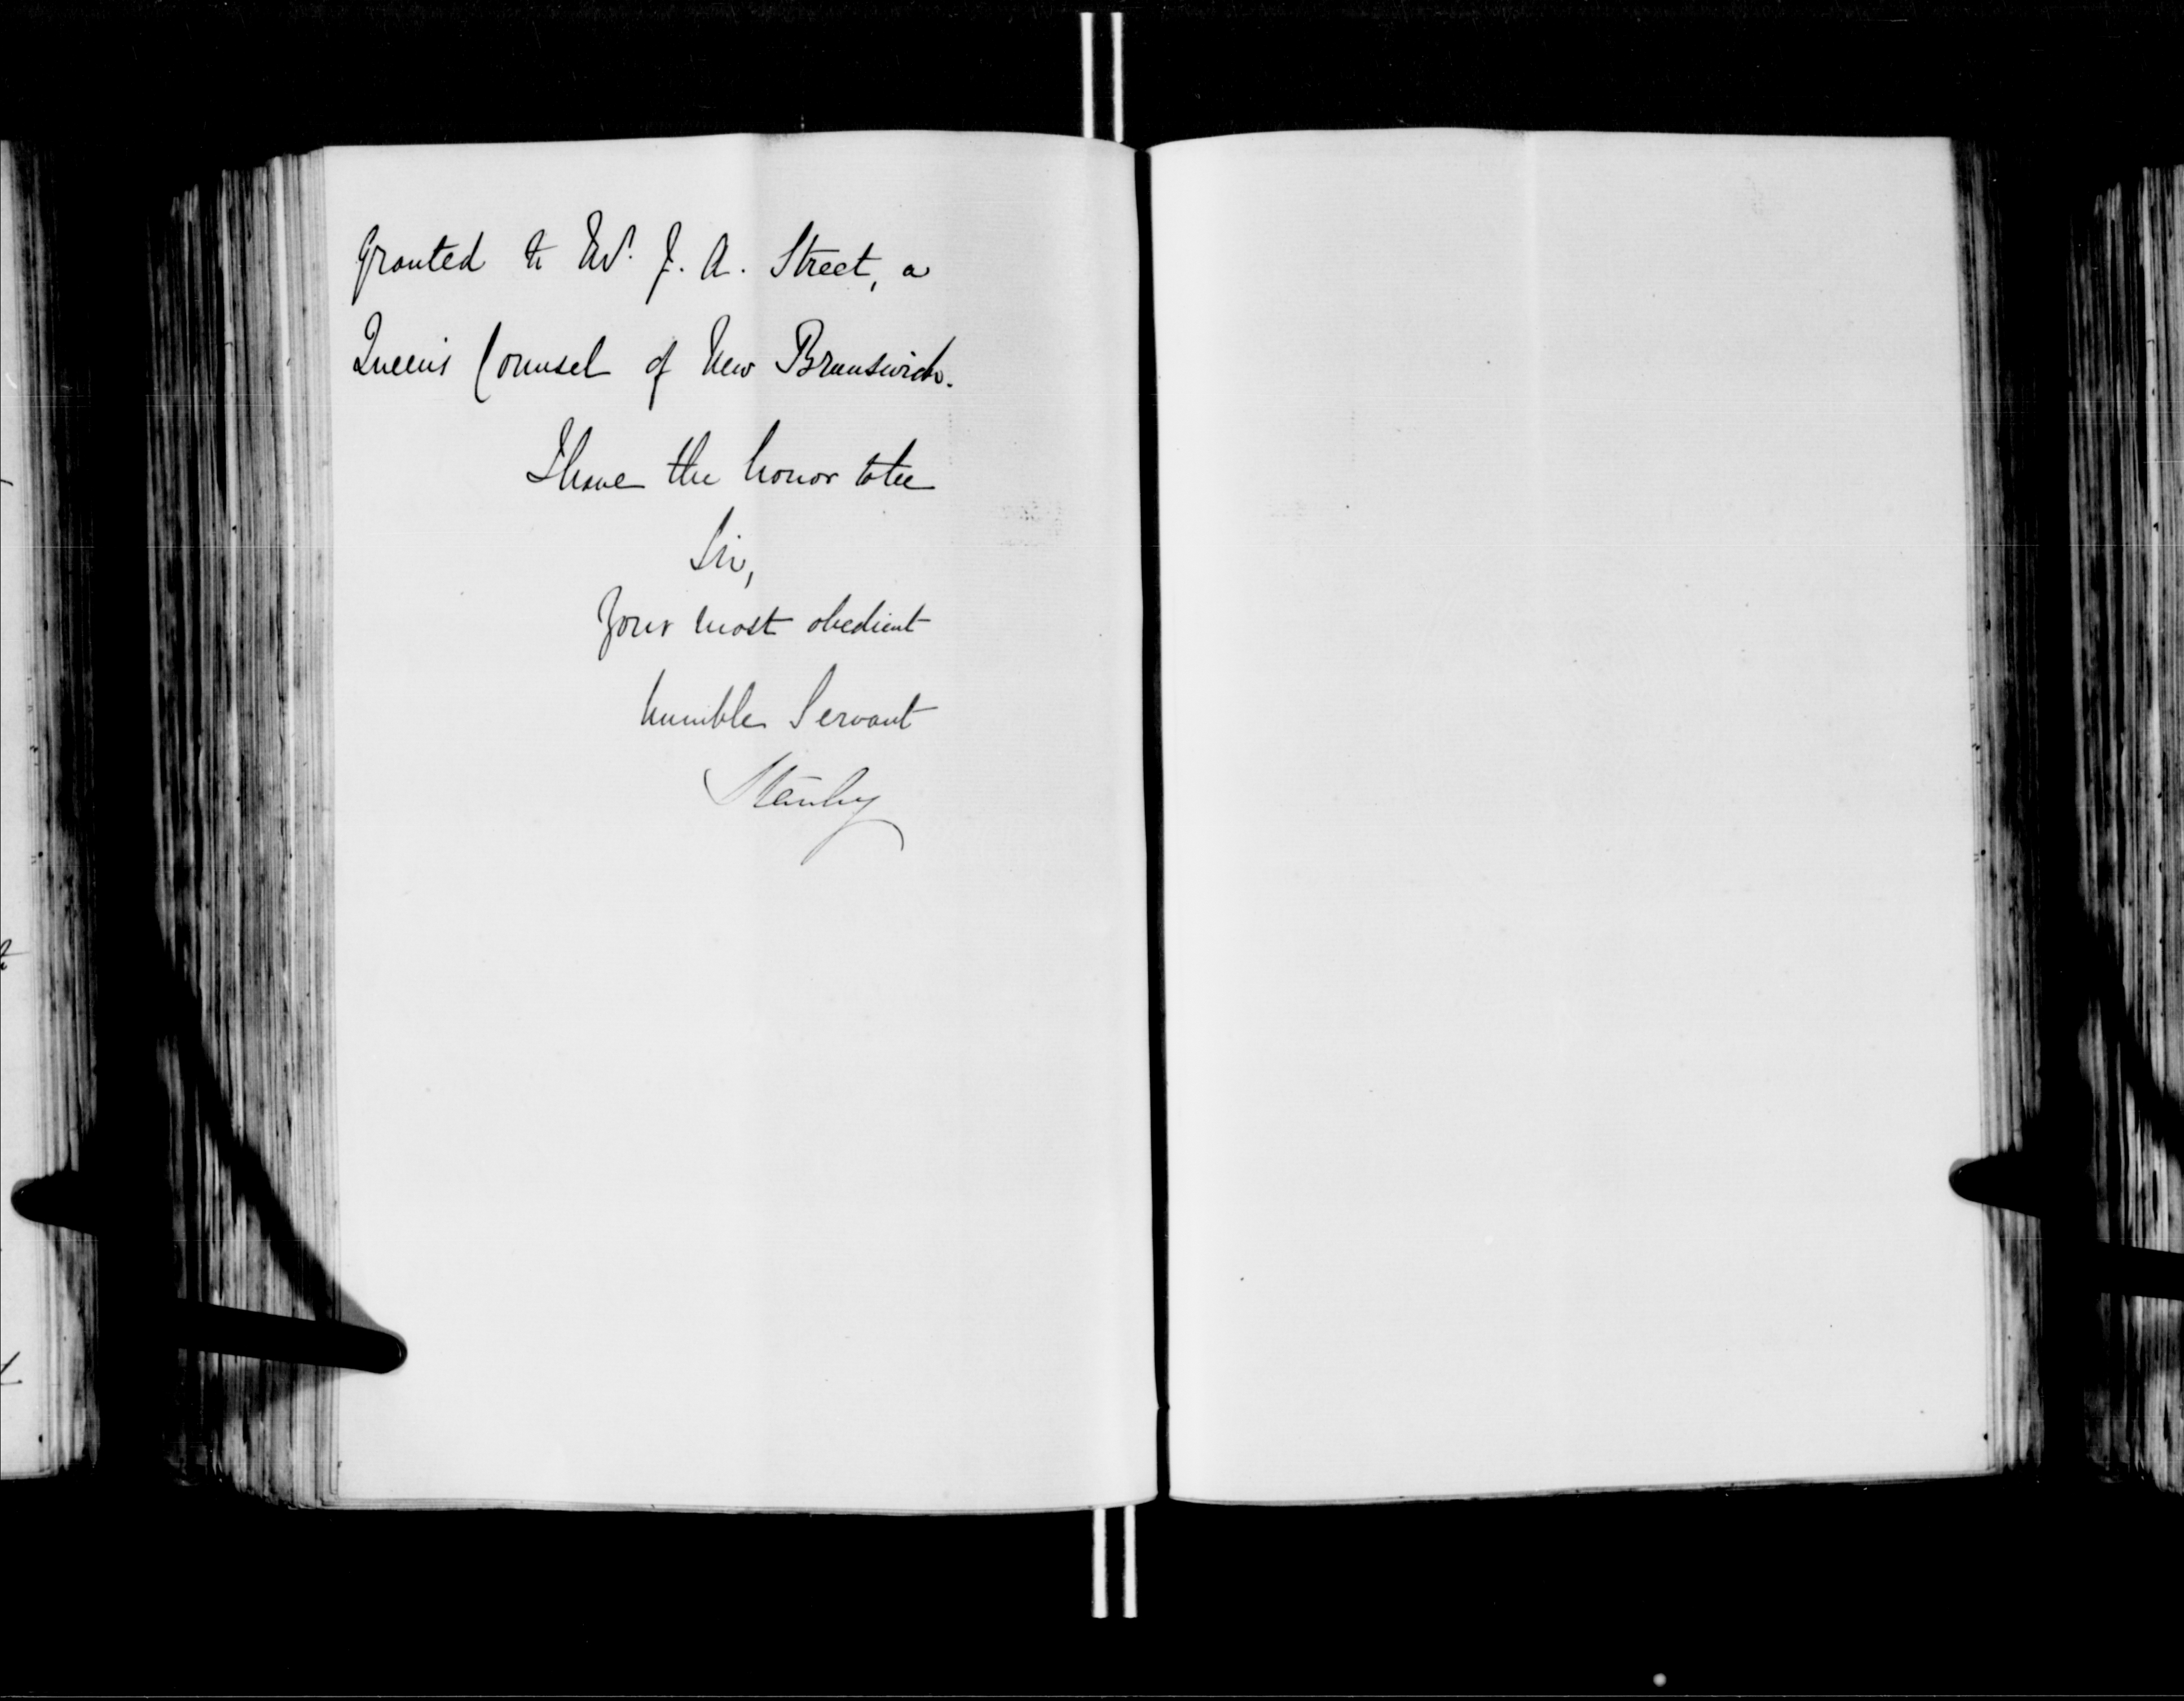 granted to Mr. J. A. Street, a
Queen's Counsel of New Brunswick.
I have the honor to be
Sir,
Your most obedient
humble Servant
Stanley